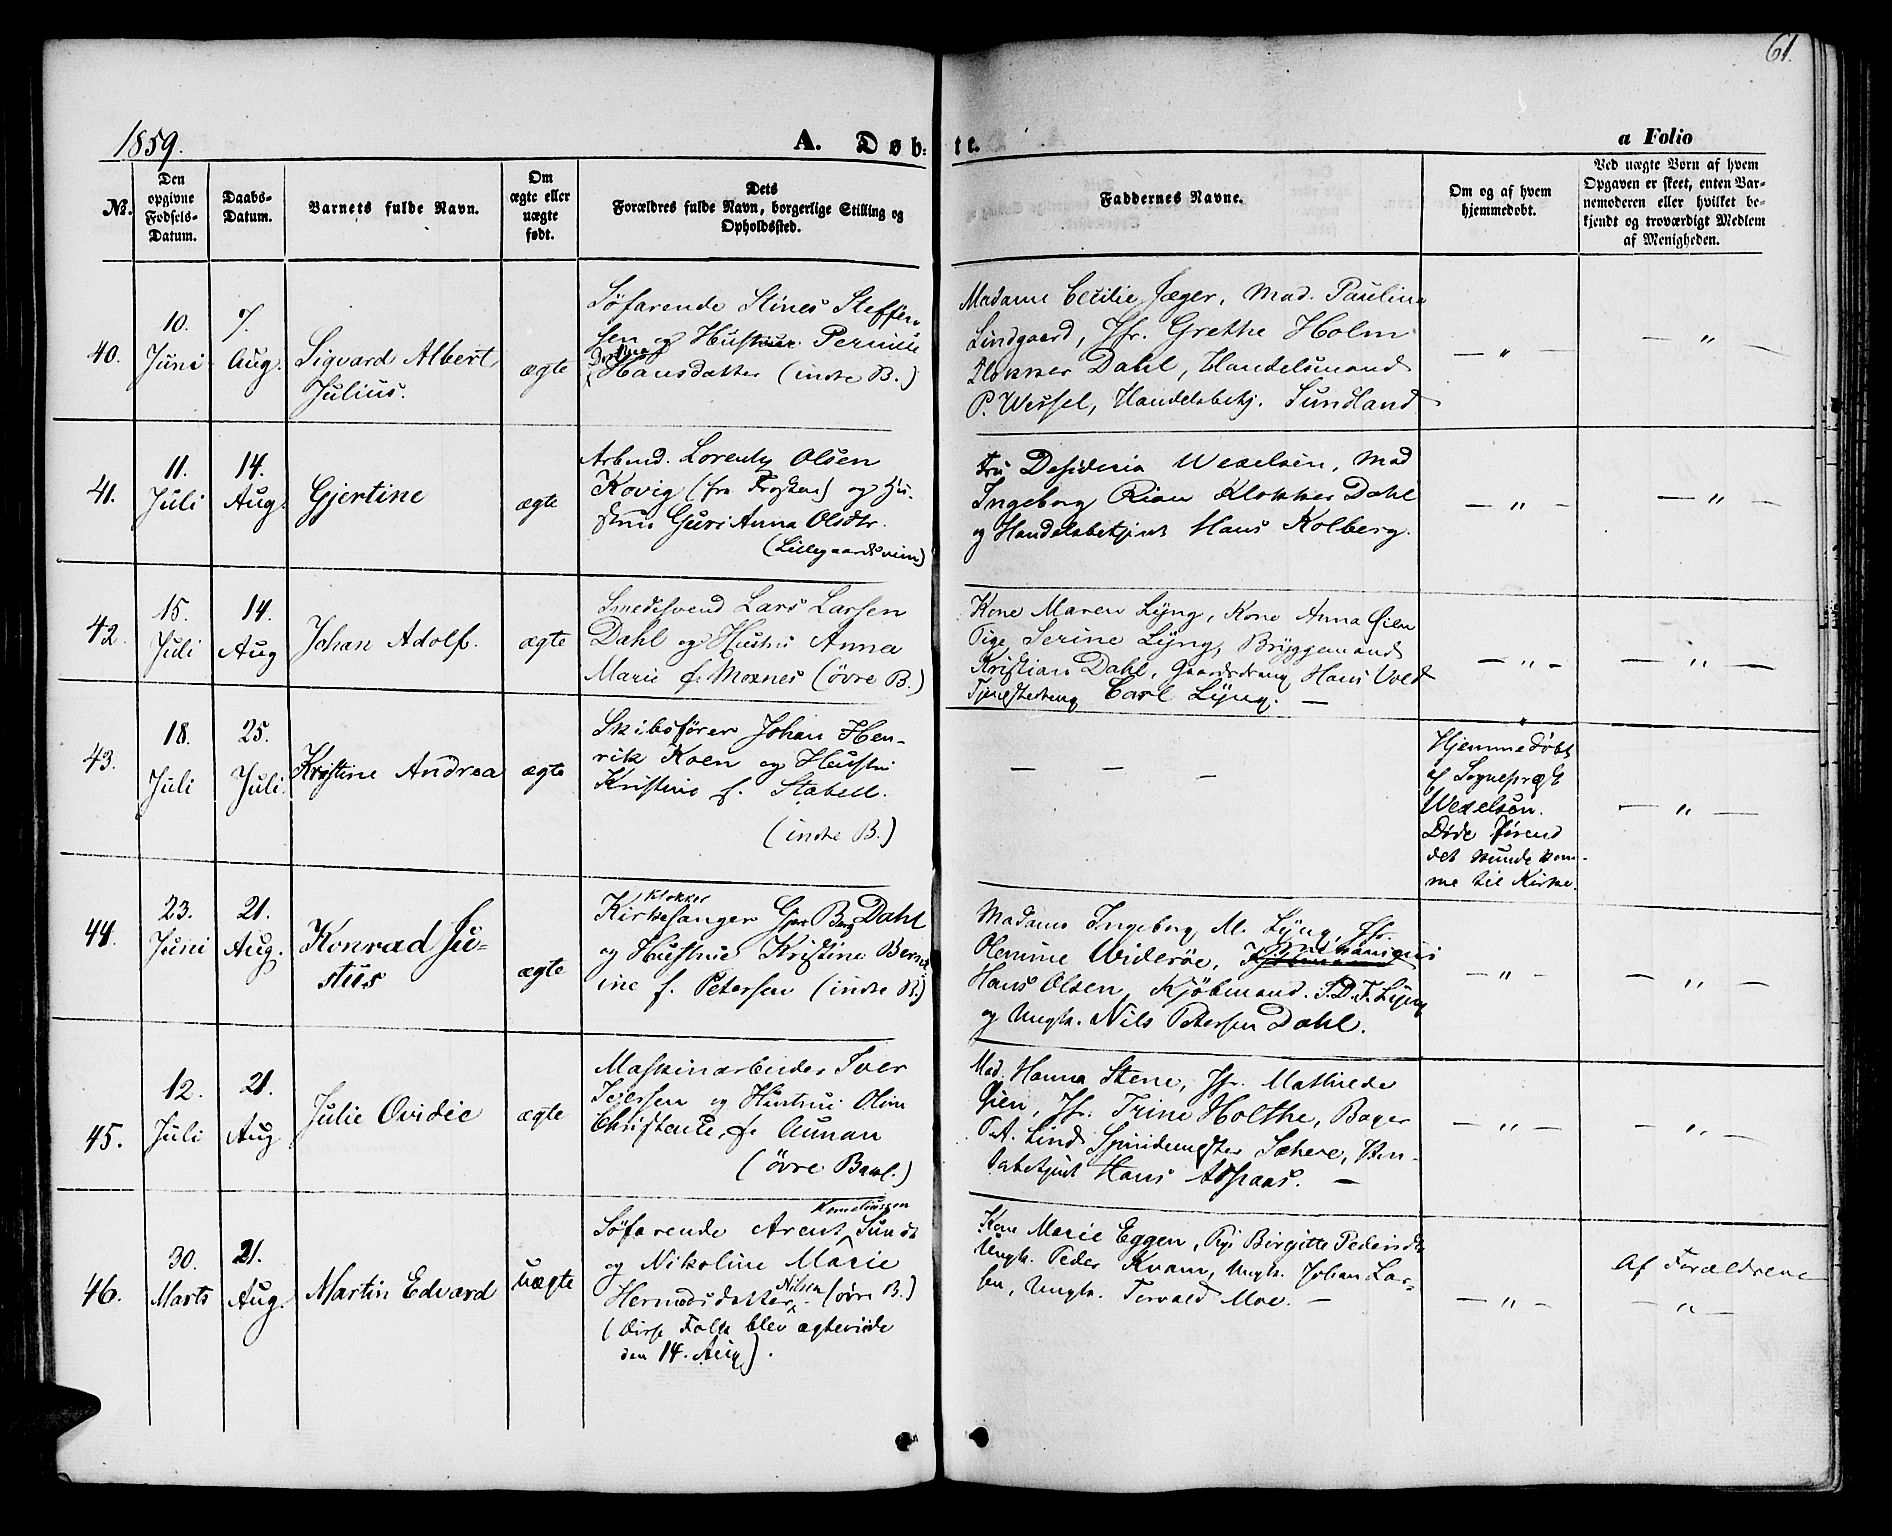 61.
1859.
A. Døb-
te.
a Folio
№.
Den
opgivne
Fødsels-
Datum.
Daabs-
Datum.
Barnets fulde Navn.
Om
ægte eller
uægte
født.
Dets
Forældres fulde Navn, borgerlige Stilling og
Opholdssted.
Faddernes Navne.
Om og af hvem
hjemmedøbt.
Ved uægte Børn af hvem
Opgaven er skeet, enten Bar-
nemoderen eller hvilket be-
kjendt og troværdigt Medlem
af Menigheden.
40.
10.
Juni
7.
Aug.
Sigvard Albert
Julius.
ægte
Søfarende Stines Steffen-
sen og Hustrue Pernille
Hansdatter (indre B.)
Madame Cecilie Jæger, Mad. Pauline
Lindgaard, Jfr. Grethe Holm
Klokker Dahl, Handelsmand
P. Wessel, Handelsbetj. Sundland
— " —
— " —
41.
11.
Juli
14.
Aug.
Gjertine
ægte
Arbmd. Lorents Olsen
Kovig (fra Frosten) og Hu-
strue Guri Anna Olsdtr.
(Lillegaardsveien)
Fru Desideria Wexelsen, Mad
Ingeborg Rian Klokker Dahl
og Handelsbetjent Hans Kolberg.
— " —
— " —
42.
15.
Juli
14.
Aug
Johan Adolf.
ægte
Smedesvend Lars Larsen
Dahl og Hustru Anna
Marie f. Moxnes (övre B.)
Kone Maren Lÿng, Kone Anna Øien
Pige Serine Lÿng, Bryggemand
Kristian Dahl, Gaardsdreng Hans Vold
Tjenestedreng Carl Lÿng. —
— " —
— " —
43.
18.
Juli
25.
Juli.
Kristine Andrea
ægte
Skibsfører Johan Hen-
rik Koen og Hustru
Kristine f. Stabell.
(indre B.)
— — —
Hjemmedöbt
af Sognepræst
Wexelsen.
Døde förend
det kunde kom-
me til Kirke.
— " —
44.
23.
Juni
21.
Aug.
Konrad Ju-
stus
ægte
Klokker
Kirkesanger Gjer Berg Dahl
og Hustrue Kristine Bernt
ine f. Petersen (indre B.)
Madame Ingeborg M. Lÿng, Jfr.
Olemine Widerøe,
Hans Olsen, Kjöbmand J. D. F. Lÿng
og Ungk. Nils Petersen Dahl.
— " —
— " —
45.
12.
Juli
21.
Aug.
Julie Ovidie
ægte
Maskinarbeider Iver
Iversen og Hustrue Oline
Christence f. Aunan
(övre Bakl.)
Mad. Hanna Stene, Jfr. Mathilde
Øien, Jfr. Trine Holthe, Bager
O. A. Lind Spindemester Sæhere, Han-
delsbetjent Hans Aspaas. —
— " —
— " —
46.
30.
Marts
21.
Aug.
Martin Edvard
uægte
Korneliussen
Søfarende Arent Sundt
og Nikoline Marie
Hermodsdatter Nilsen (övre B.)
(disse Folk blev ægteviede
den 14. Aug).
Kone Marie Eggen, Pige Birgitte Pedersdtr
Ungk. Peder Kvam, Ungk. Johan Lar-
sen, Ungk. Torvald Moe. —
— " —
Af Forældrene
— " —